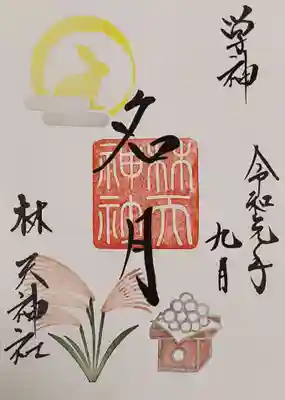 学神
令和元年
九月
名月
林天
神社
林天神社